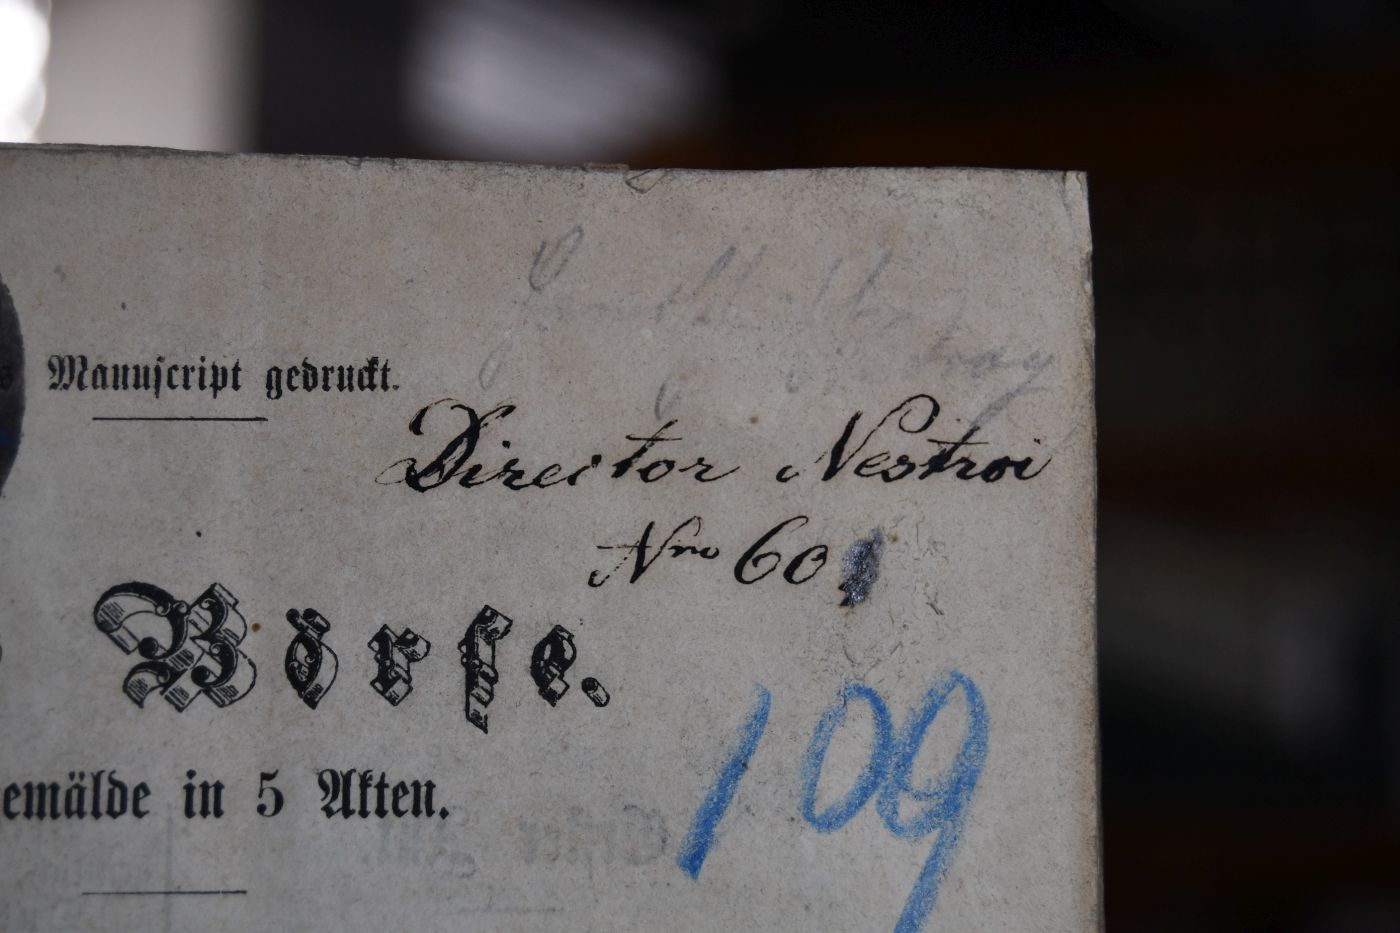 Manuscript gedruckt.
Director Nestroi
Nro 60
Börse.
emälde in 5 Akten.
109